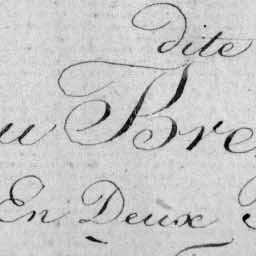 dite
u Bre
En Deux